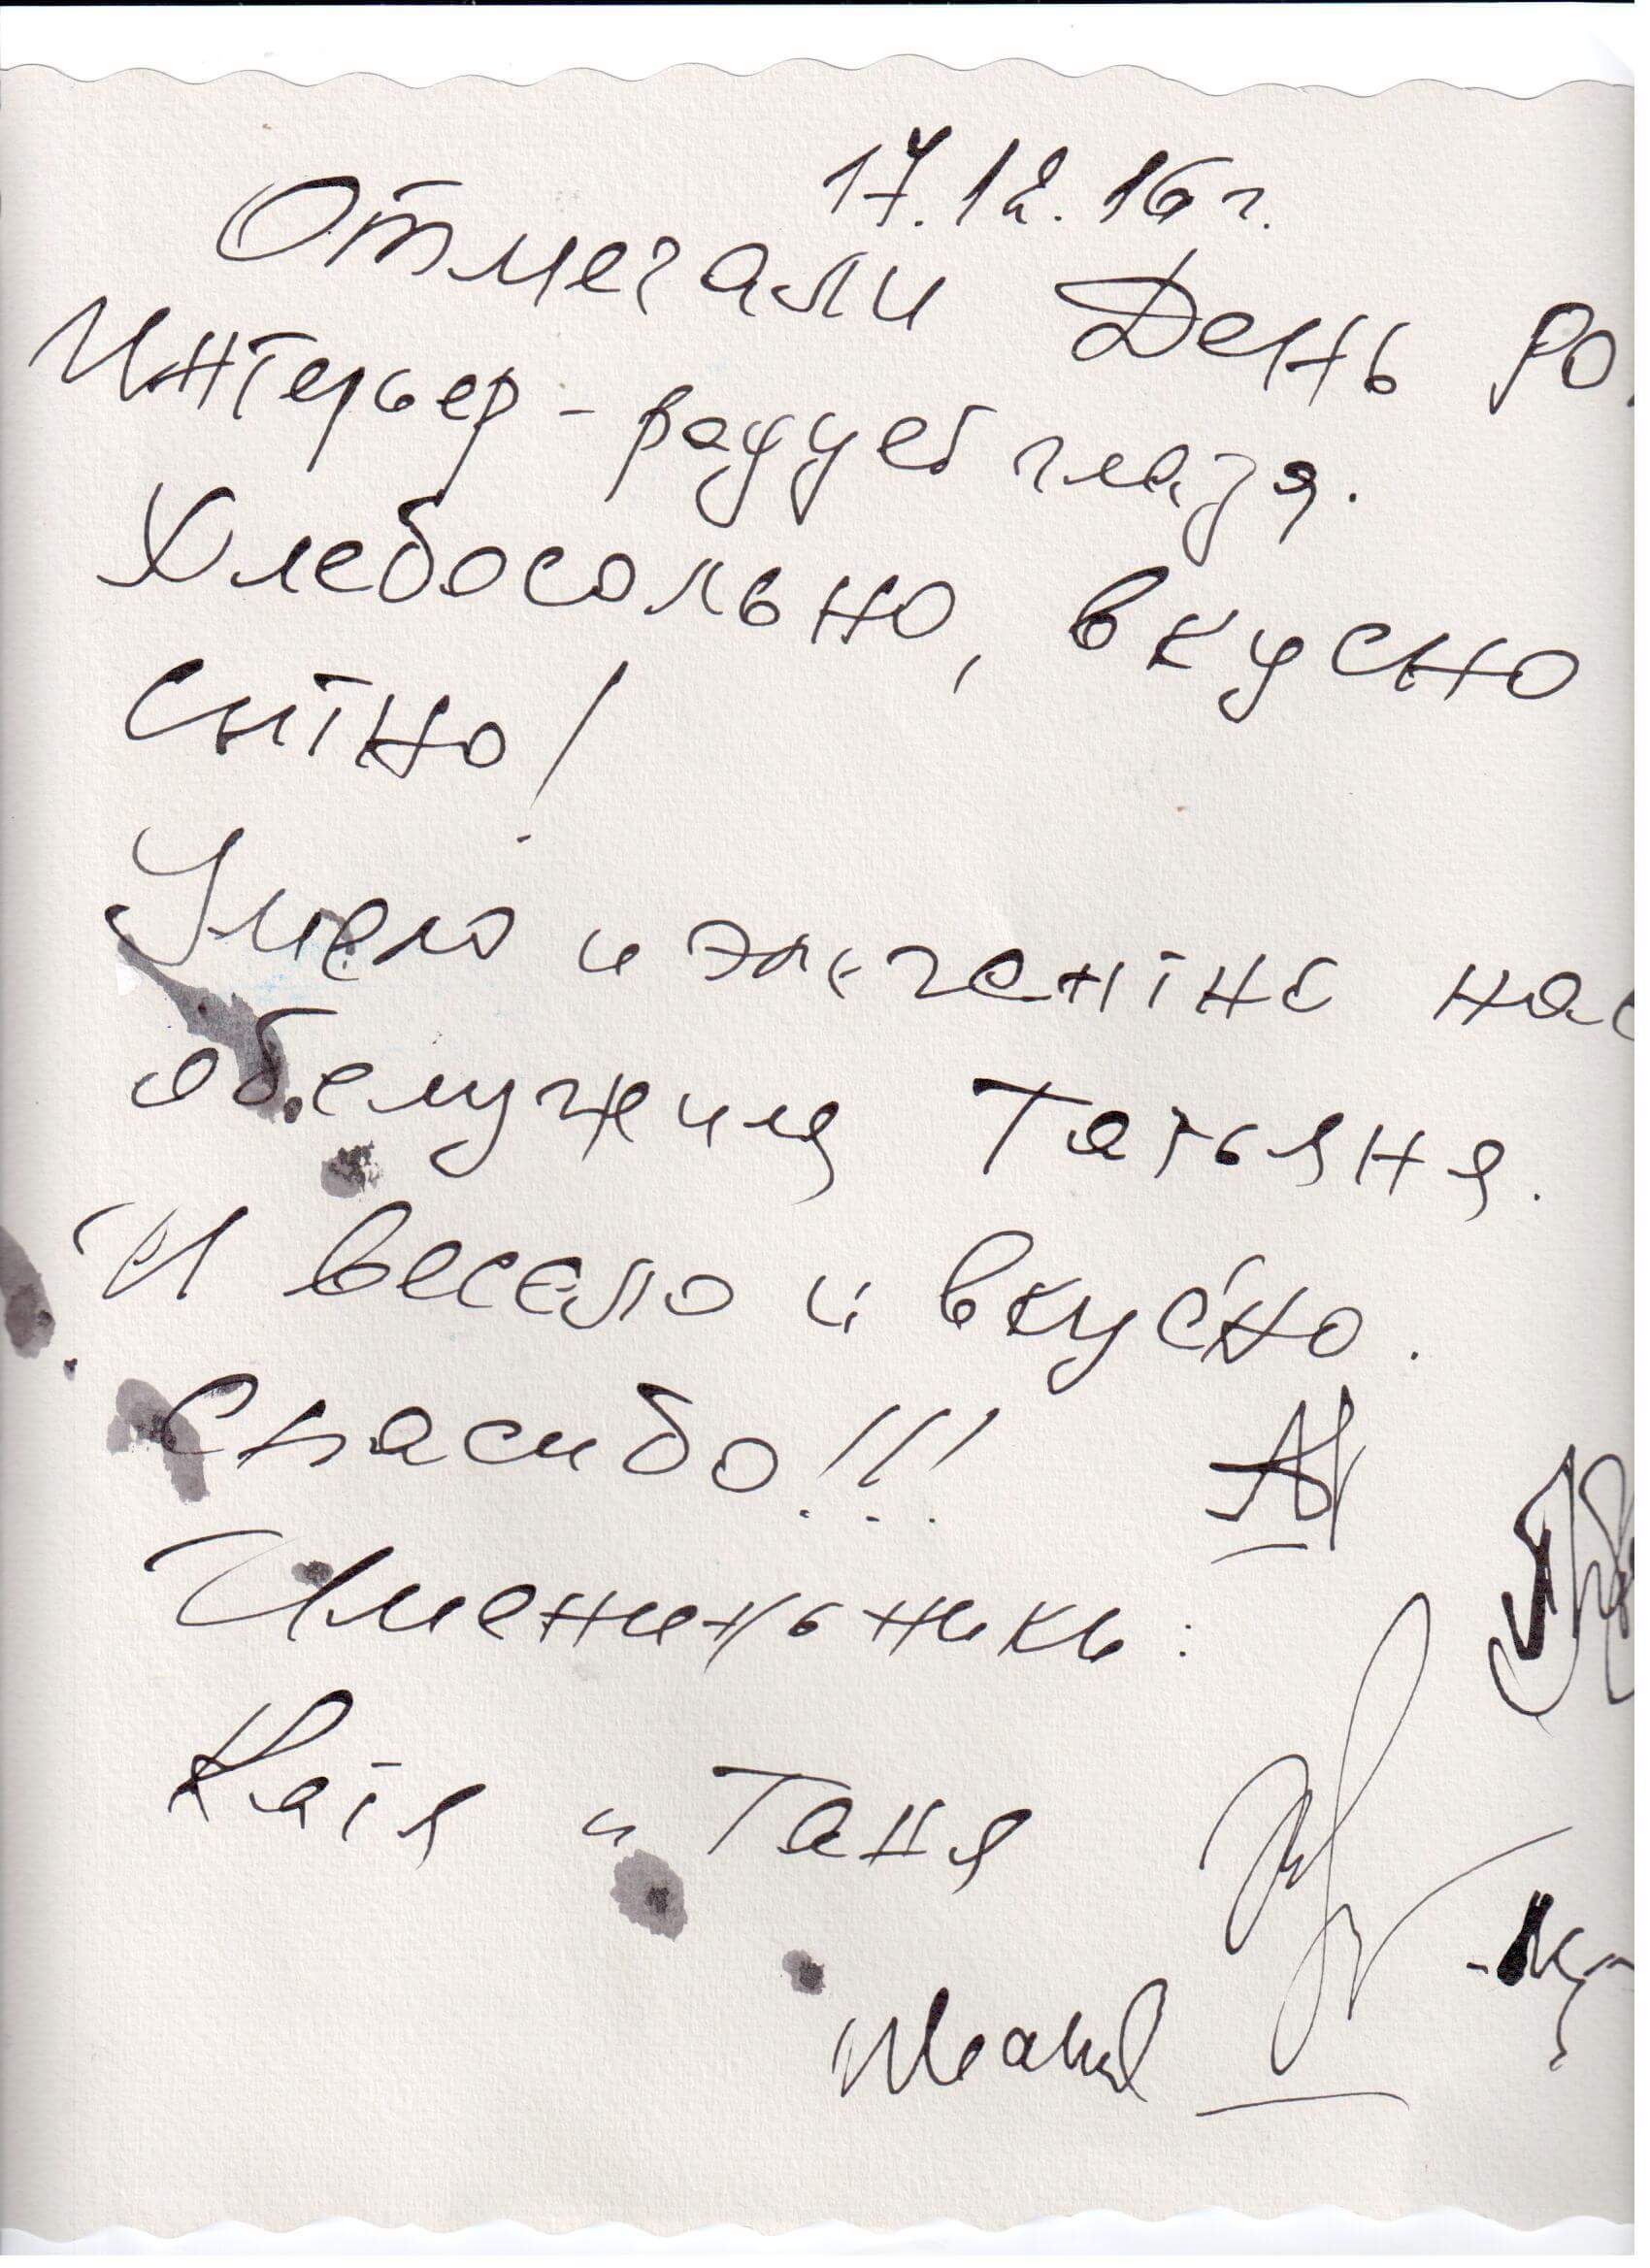 17.12.16 г.
Отмечали День ро
Интерьер - радует глаза.
Хлебосольно, вкусно
сытно!
Умело и элегантно нас
обслужила Татьяна.
И весело и вкусно.
Спасибо!!!
Именинники:
Катя и Таня